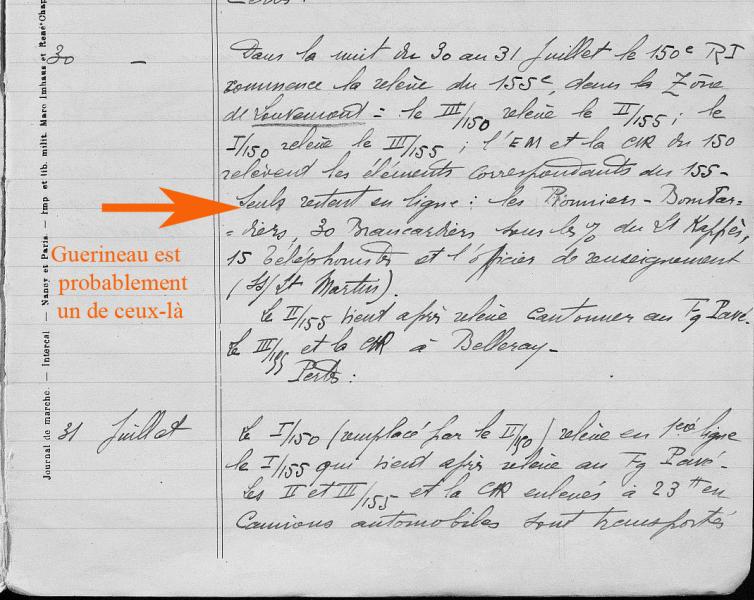 30 — Dans la nuit du 30 au 31 Juillet le 150e RI
commence la relève du 155e, dans la Zône
de Louvemont = le III/150 relève le II/155 ; le
I/150 relève le III/155 ; l'EM et la CHR du 150
relèvent les éléments correspondants du 155 -
Seuls restent en ligne : les Pionniers - Bombar-
- diers, 30 Brancardiers sous les o/ du Lt Kappès,
15 Téléphonistes et l'officier de renseignement
(S/Lt Martin).
Le II/155 vient après relève cantonner au Fg Pavé.
Le III/155 et la CHR à Belleray -
Pertes :
31 Juillet Le I/150 (remplacé par le II/150) relève en 1ère ligne
le I/155 qui vient après relève au Fg Pavé.
Les II et III/155 et la CHR enlevés à 23H en
Camions automobiles sont transportés
Guerineau est
probablement
un de ceux-là
Journal de marche. — Intercal — Nancy et Paris. — Imp et lib. milit. Marc Imhaus et René Chap